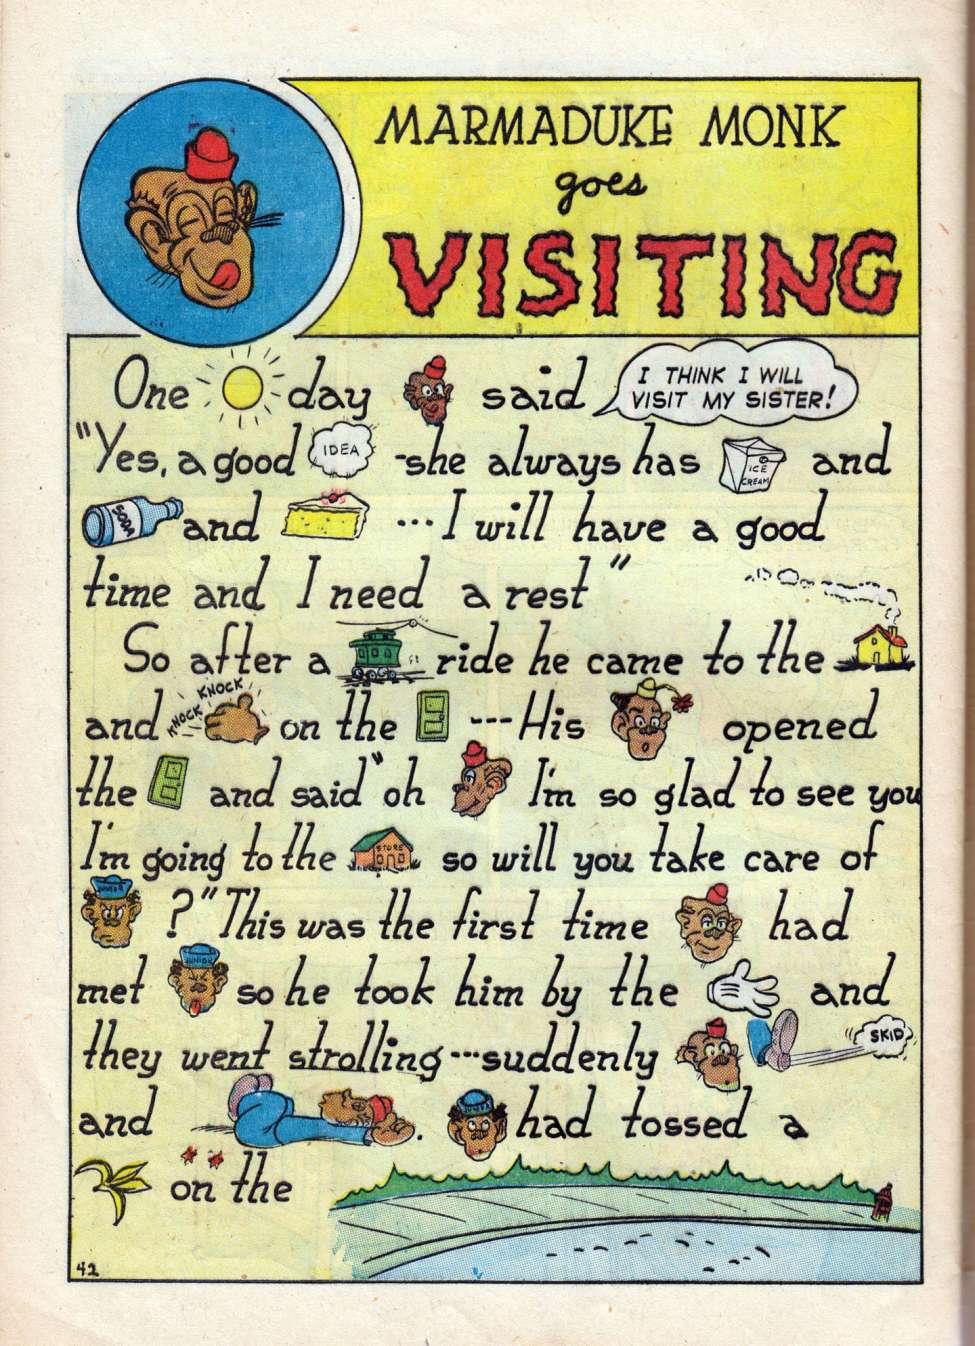 MARMADUKE MONK
goes
VISITING
One day said I THINK I WILL
VISIT MY SISTER!
"Yes, a good IDEA -she always has ICE
CREAM and
SODA and ...I will have a good
time and I need a rest"
So after a ride he came to the
and KNOCK KNOCK on the --- His opened
the and said "oh I'm so glad to see you
I'm going to the STORE so will you take care of
JUNIOR ?" This was the first time had
met JUNIOR so he took him by the and
they went strolling---suddenly SKID
and . JUNIOR had tossed a
on the
42